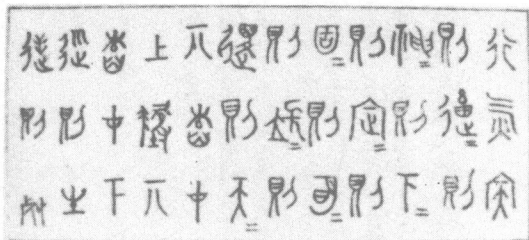 行氣㝐
則䔬＝則
神＝則下＝
則定＝則
固＝則明＝
則長＝則
復則天＝
丌舂才
上墬丌
舂才下
巡則生
逆則死